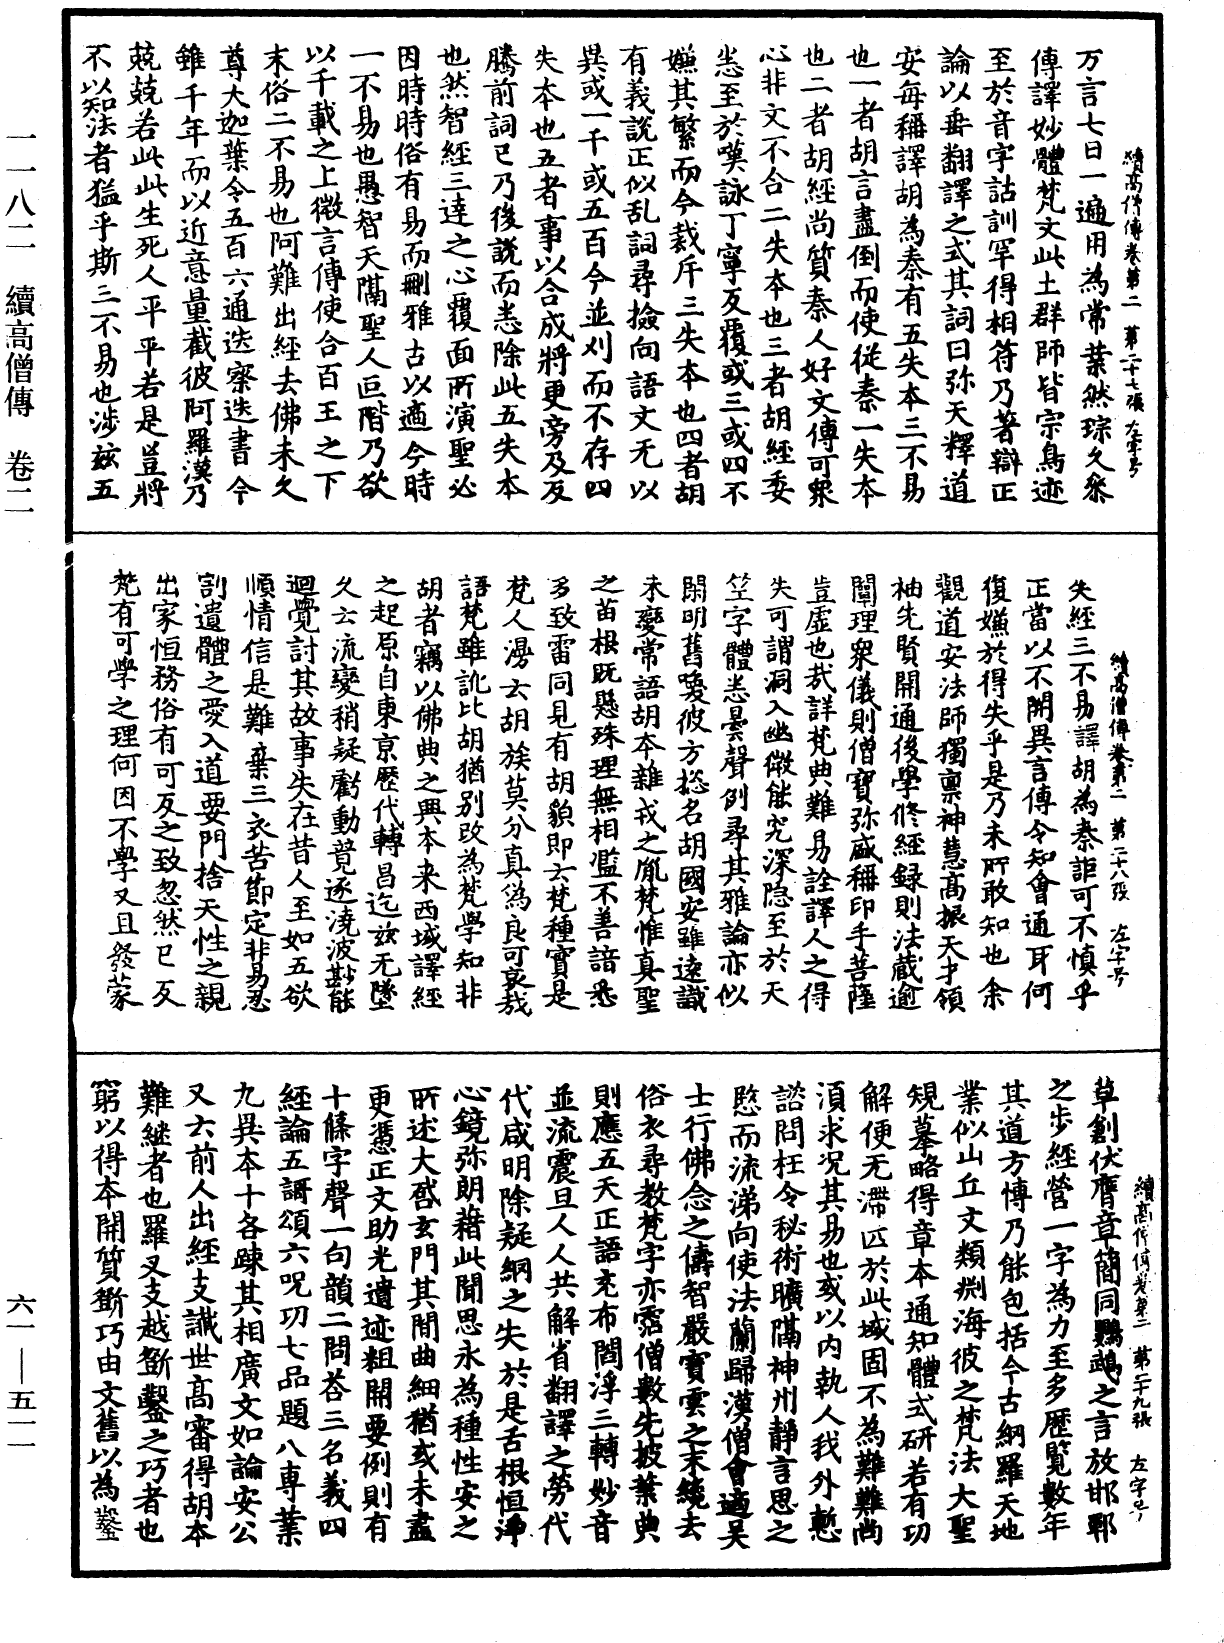 一一八二　續高僧傳　卷二
續高僧傳卷第二　第二十七張　左字号
万言七日一遍用為常業然琮久叅
傳譯妙體梵文此土群師皆宗鳥迹
至於音字詁訓罕得相符乃著辯正
論以垂翻譯之式其詞曰弥天釋道
安每稱譯胡為秦有五失本三不易
也一者胡言盡倒而使從秦一失本
也二者胡經尚質秦人好文傳可衆
心非文不合二失本也三者胡經委
悉至於嘆詠丁寧反覆或三或四不
嫌其繁而今裁斥三失本也四者胡
有義說正似乱詞尋撿向語文无以
異或一千或五百今並刈而不存四
失本也五者事以合成將更旁及反
騰前詞已乃後說而悉除此五失本
也然智經三達之心覆面所演聖必
因時時俗有易而刪雅古以適今時
一不易也愚智天隔聖人叵階乃欲
以千載之上微言傳使合百王之下
末俗二不易也阿難出經去佛未久
尊大迦葉令五百六通迭察迭書今
雖千年而以近意量截彼阿羅漢乃
兢兢若此此生死人平平若是豈將
不以知法者猛乎斯三不易也涉兹五
續高僧傳卷第二　第二十八張　左字号
失經三不易譯胡為秦詎可不慎乎
正當以不開異言傳令知會通耳何
復嫌於得失乎是乃未所敢知也余
觀道安法師獨禀神慧高振天才領
袖先賢開通後學修經録則法藏逾
闡理衆儀則僧寶弥盛稱印手菩薩
豈虛也哉詳梵典難易詮譯人之得
失可謂洞入幽微能究深隐至於天
竺字體悉曇聲例尋其雅論亦似
閑明舊喚彼方揔名胡國安雖遠識
未變常語胡本雜戎之胤梵惟真聖
之苗根既懸殊理無相濫不善諳悉
多致雷同見有胡貌即云梵種實是
梵人漫云胡族莫分真偽良可哀哉
語梵雖訛比胡猶別改為梵學知非
胡者竊以佛典之興本来西域譯經
之起原自東京歷代轉昌迄兹无墜
久云流變稍疑虧動竟逐澆波尠能
迴覺討其故事失在昔人至如五欲
順情信是難棄三衣苦節定非易忍
割遺體之愛入道要門捨天性之親
出家恒務俗有可反之致忽然已反
梵有可學之理何因不學又且發蒙
續高僧傳卷第二　第二十九張　左字号
草創伏膺章簡同鸚鵡之言放邯鄲
之步經營一字為力至多歷覽數年
其道方博乃能包括今古網羅天地
業似山丘文類渕海彼之梵法大聖
規摹略得章本通知體式研若有功
解便无滯匹於此域固不為難難尚
湏求况其易也或以内執人我外慙
諮問枉令秘術曠隔神州靜言思之
愍而流涕向使法蘭歸漢僧會適吴
士行佛念之儔智嚴寶雲之末纔去
俗衣尋教梵字亦霑僧數先披葉典
則應五天正語充布閻浮三轉妙音
並流震旦人人共解省翻譯之勞代
代咸明除疑網之失於是舌根恒淨
心鏡弥朗藉此聞思永為種性安之
所述大啓玄門其間曲細猶或未盡
更憑正文助光遺迹粗開要例則有
十條字聲一句韻二問荅三名義四
經論五謌頌六呪功七品題八專業
九異本十各踈其相廣文如論安公
又云前人出經支讖世高審得胡本
難継者也羅叉支越斵鑿之巧者也
窮以得本開質斵巧由文舊以為鑿
六一——五一一